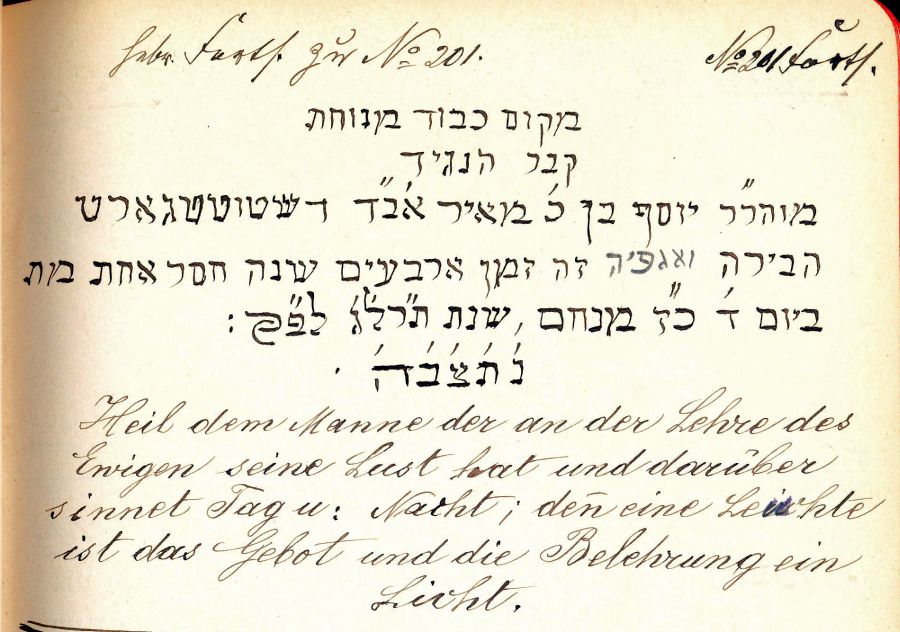 hebr. Forts. zur No 201. No 201 Forts.
במקום כבוד מנוחת
קבר הנגיד
מוהר״ר יוסף בן כ׳ מאיר אב״ד דשטוטטגארט
הבירה ואגפיה זה זמן ארבעים שנה חסר אחת מת
ביום ד׳ כ״ז מנחם, שנת תרל״ז לפ״ק :
נ׳ת׳צ׳ב׳ה׳ .
Heil dem Manne der an der Lehre des
Ewigen seine Lust hat und darüber
sinnet Tag u: Nacht; deñ eine Leuchte
ist das Gebot und die Belehrung ein
Licht.